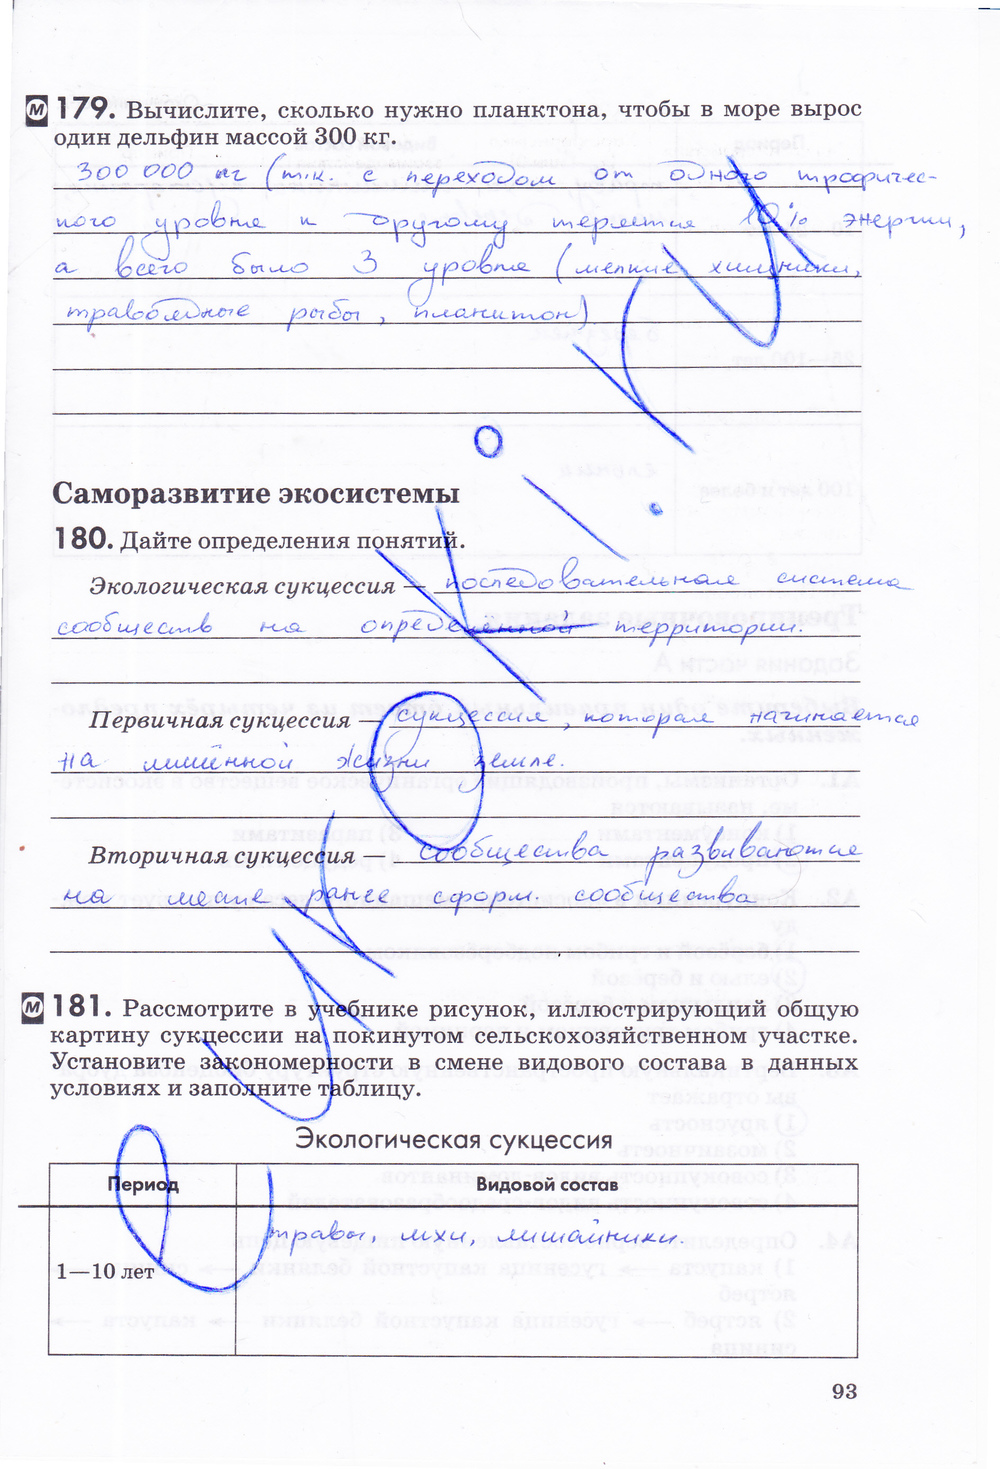 М 179. Вычислите, сколько нужно планктона, чтобы в море вырос
один дельфин массой 300 кг.
300 000 кг (т.к. с переходом от одного трофичес-
кого уровня к другому теряется 10% энергии,
а всего было 3 уровня (мелкие хищники,
травоядные рыбы, планктон)
Саморазвитие экосистемы
180. Дайте определения понятий.
Экологическая сукцессия — последовательная система
сообществ на определённой территории.
Первичная сукцессия — сукцессия, которая начинается
на лишённой жизни земле.
Вторичная сукцессия — сообщества развиваются
на месте ранее сформ. сообщества
М 181. Рассмотрите в учебнике рисунок, иллюстрирующий общую
картину сукцессии на покинутом сельскохозяйственном участке.
Установите закономерности в смене видового состава в данных
условиях и заполните таблицу.
Экологическая сукцессия
Период Видовой состав
травы, мхи, лишайники.
1—10 лет
93